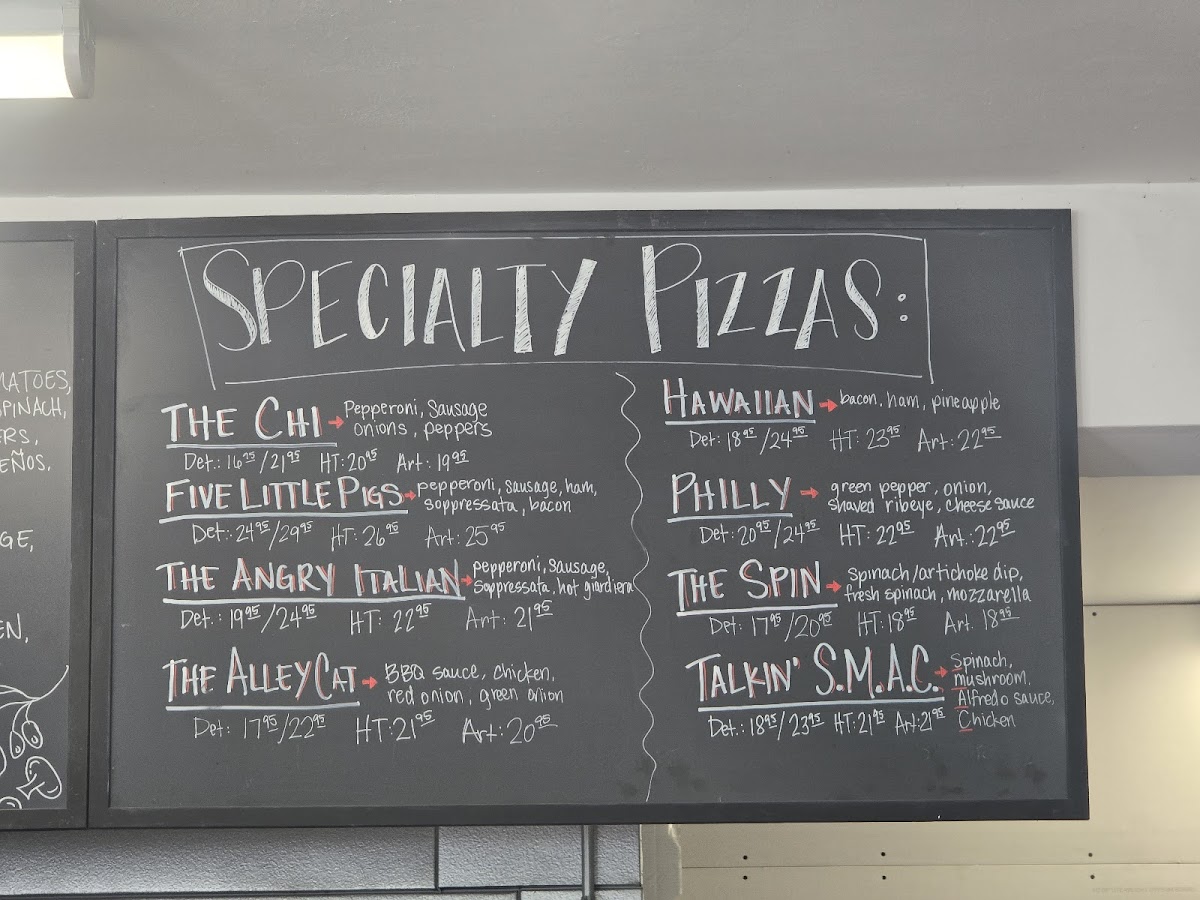 MATOES,
SPINACH,
ERS,
EÑOS.
GE,
EN,
SPECIALTY PIZZAS:
THE CHI → Pepperoni, Sausage
onions, peppers
Det.: 16.95/21.95 HT: 20.95 Art: 19.95
FIVE LITTLE PIGS → pepperoni, sausage, ham,
soppressata, bacon
Det.: 24.95/29.95 HT: 26.95 Art: 25.95
THE ANGRY ITALIAN → pepperoni, sausage,
soppressata, hot giardiera
Det.: 19.95/24.95 HT: 22.95 Art: 21.95
THE ALLEYCAT → BBQ sauce, chicken,
red onion, green onion
Det: 17.95/22.95 HT: 21.95 Art: 20.95
HAWAIIAN → bacon, ham, pineapple
Det: 18.95/24.95 HT: 23.95 Art: 22.95
PHILLY → green pepper, onion,
shaved ribeye, cheese sauce
Det: 20.95/24.95 HT: 22.95 Art.: 22.95
THE SPIN → spinach/artichoke dip,
fresh spinach, mozzarella
Det: 17.95/20.95 HT: 18.95 Art. 18.95
TALKIN' S.M.A.C. → Spinach,
mushroom,
Alfredo sauce,
Chicken
Det.: 18.95/23.95 HT: 21.95 Art: 21.95